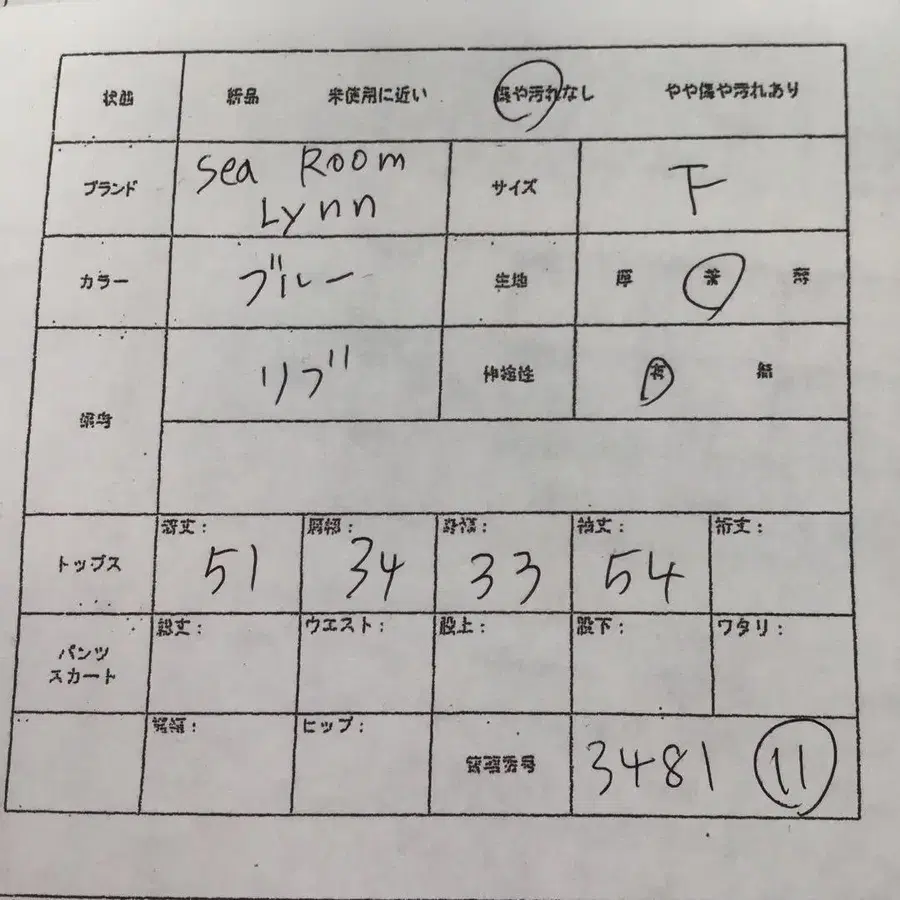 状態 新品 未使用に近い 傷や汚れなし やや傷や汚れあり
ブランド Sea Room Lynn サイズ F
カラー ブルー 生地 厚 普 薄
備考 リブ 伸縮性 有 無
トップス 着丈: 51 肩幅: 34 身幅: 33 袖丈: 54 裄丈:
パンツ スカート 総丈: ウエスト: 股上: 股下: ワタリ:
裾幅: ヒップ: 管理番号 3481 11